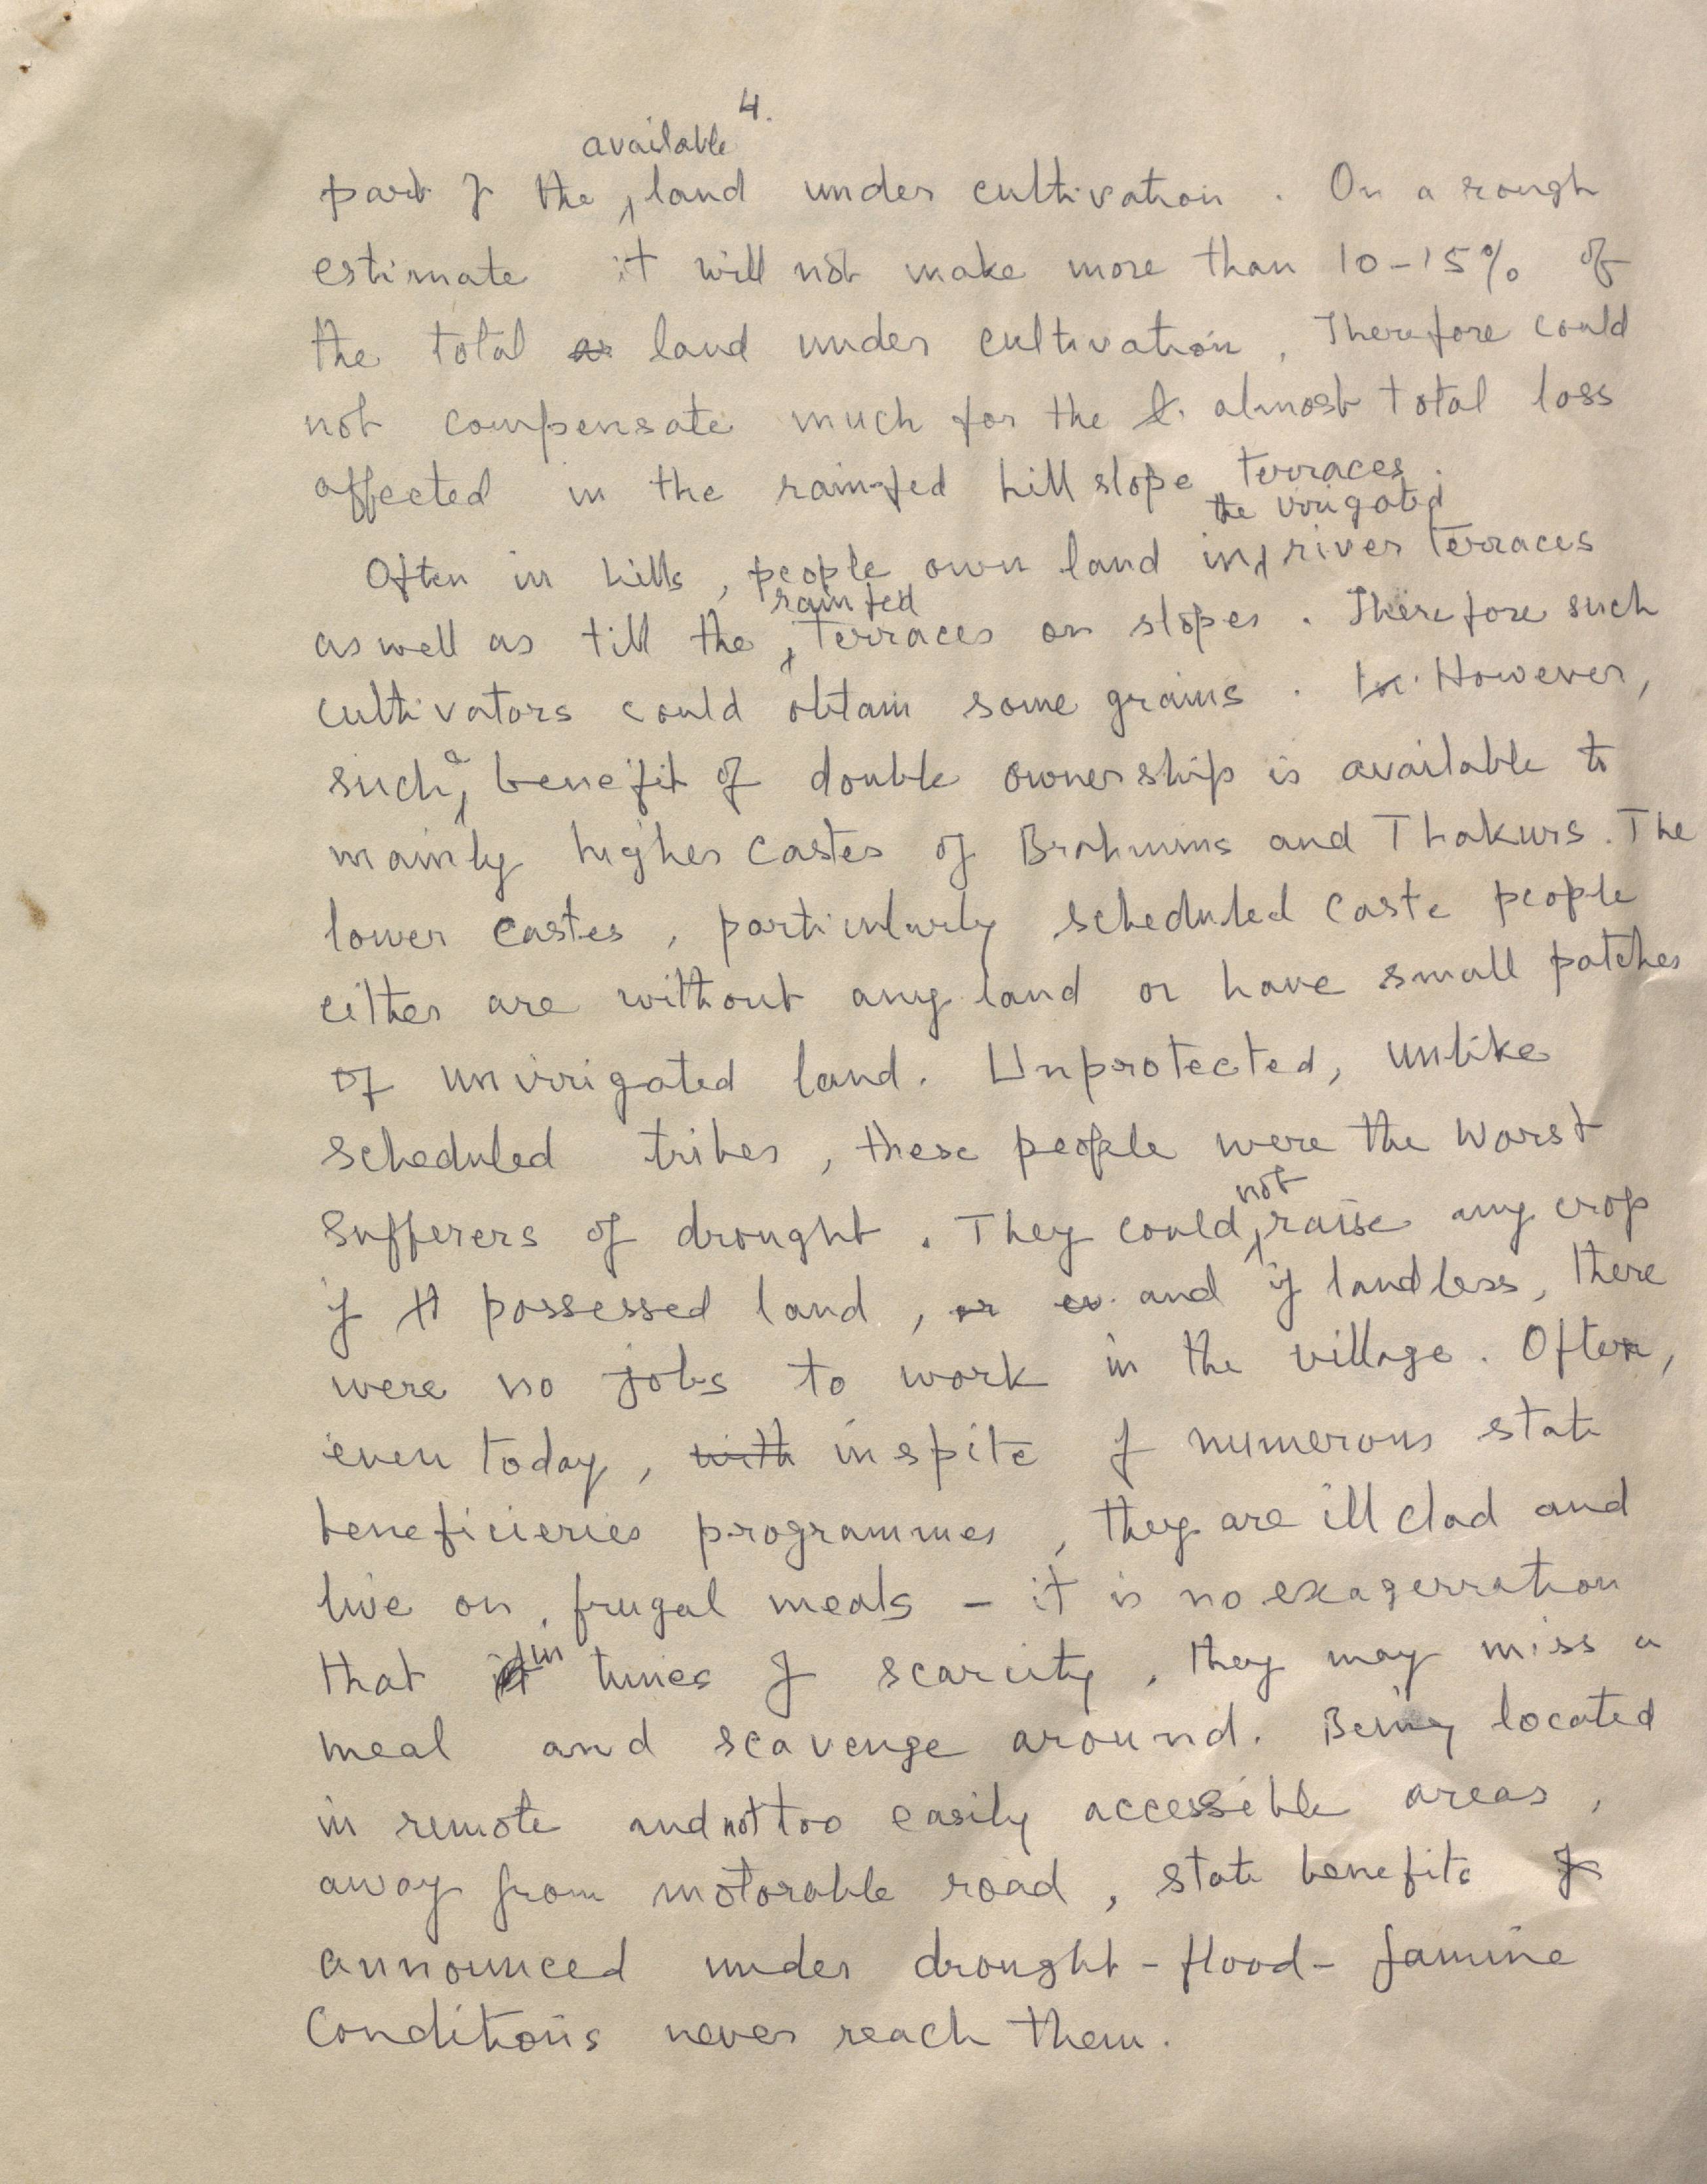 4.
available
part of the land under cultivation. On a rough
estimate it will not make more than 10-15% of
the total land under cultivation, Therefore could
not compensate much for the almost total loss
affected in the rainfed hill slope terraces.
the irrigated
Often in hills, people own land in river terraces
rainfed
as well as till the terraces on slopes. Therefore such
cultivators could obtain some grains. However,
such a benefit of double ownership is available to
mainly higher castes of Brahmins and Thakurs. The
lower castes, particularly scheduled caste people
either are without any land or have small patches
of unirrigated land. Unprotected, unlike
scheduled tribes, these people were the worst
not
sufferers of drought. They could raise any crop
if possessed land, and if landless, there
were no jobs to work in the village. Often,
even today, with inspite of numerous state
beneficieries programmes, they are ill clad and
live on frugal meals - it is no exagerration
that in times of scarcity, they may miss a
meal and scavenge around. Being located
in remote and not too easily accessible areas,
away from motorable road, state benefits
announced under drought-flood-famine
conditions never reach them.